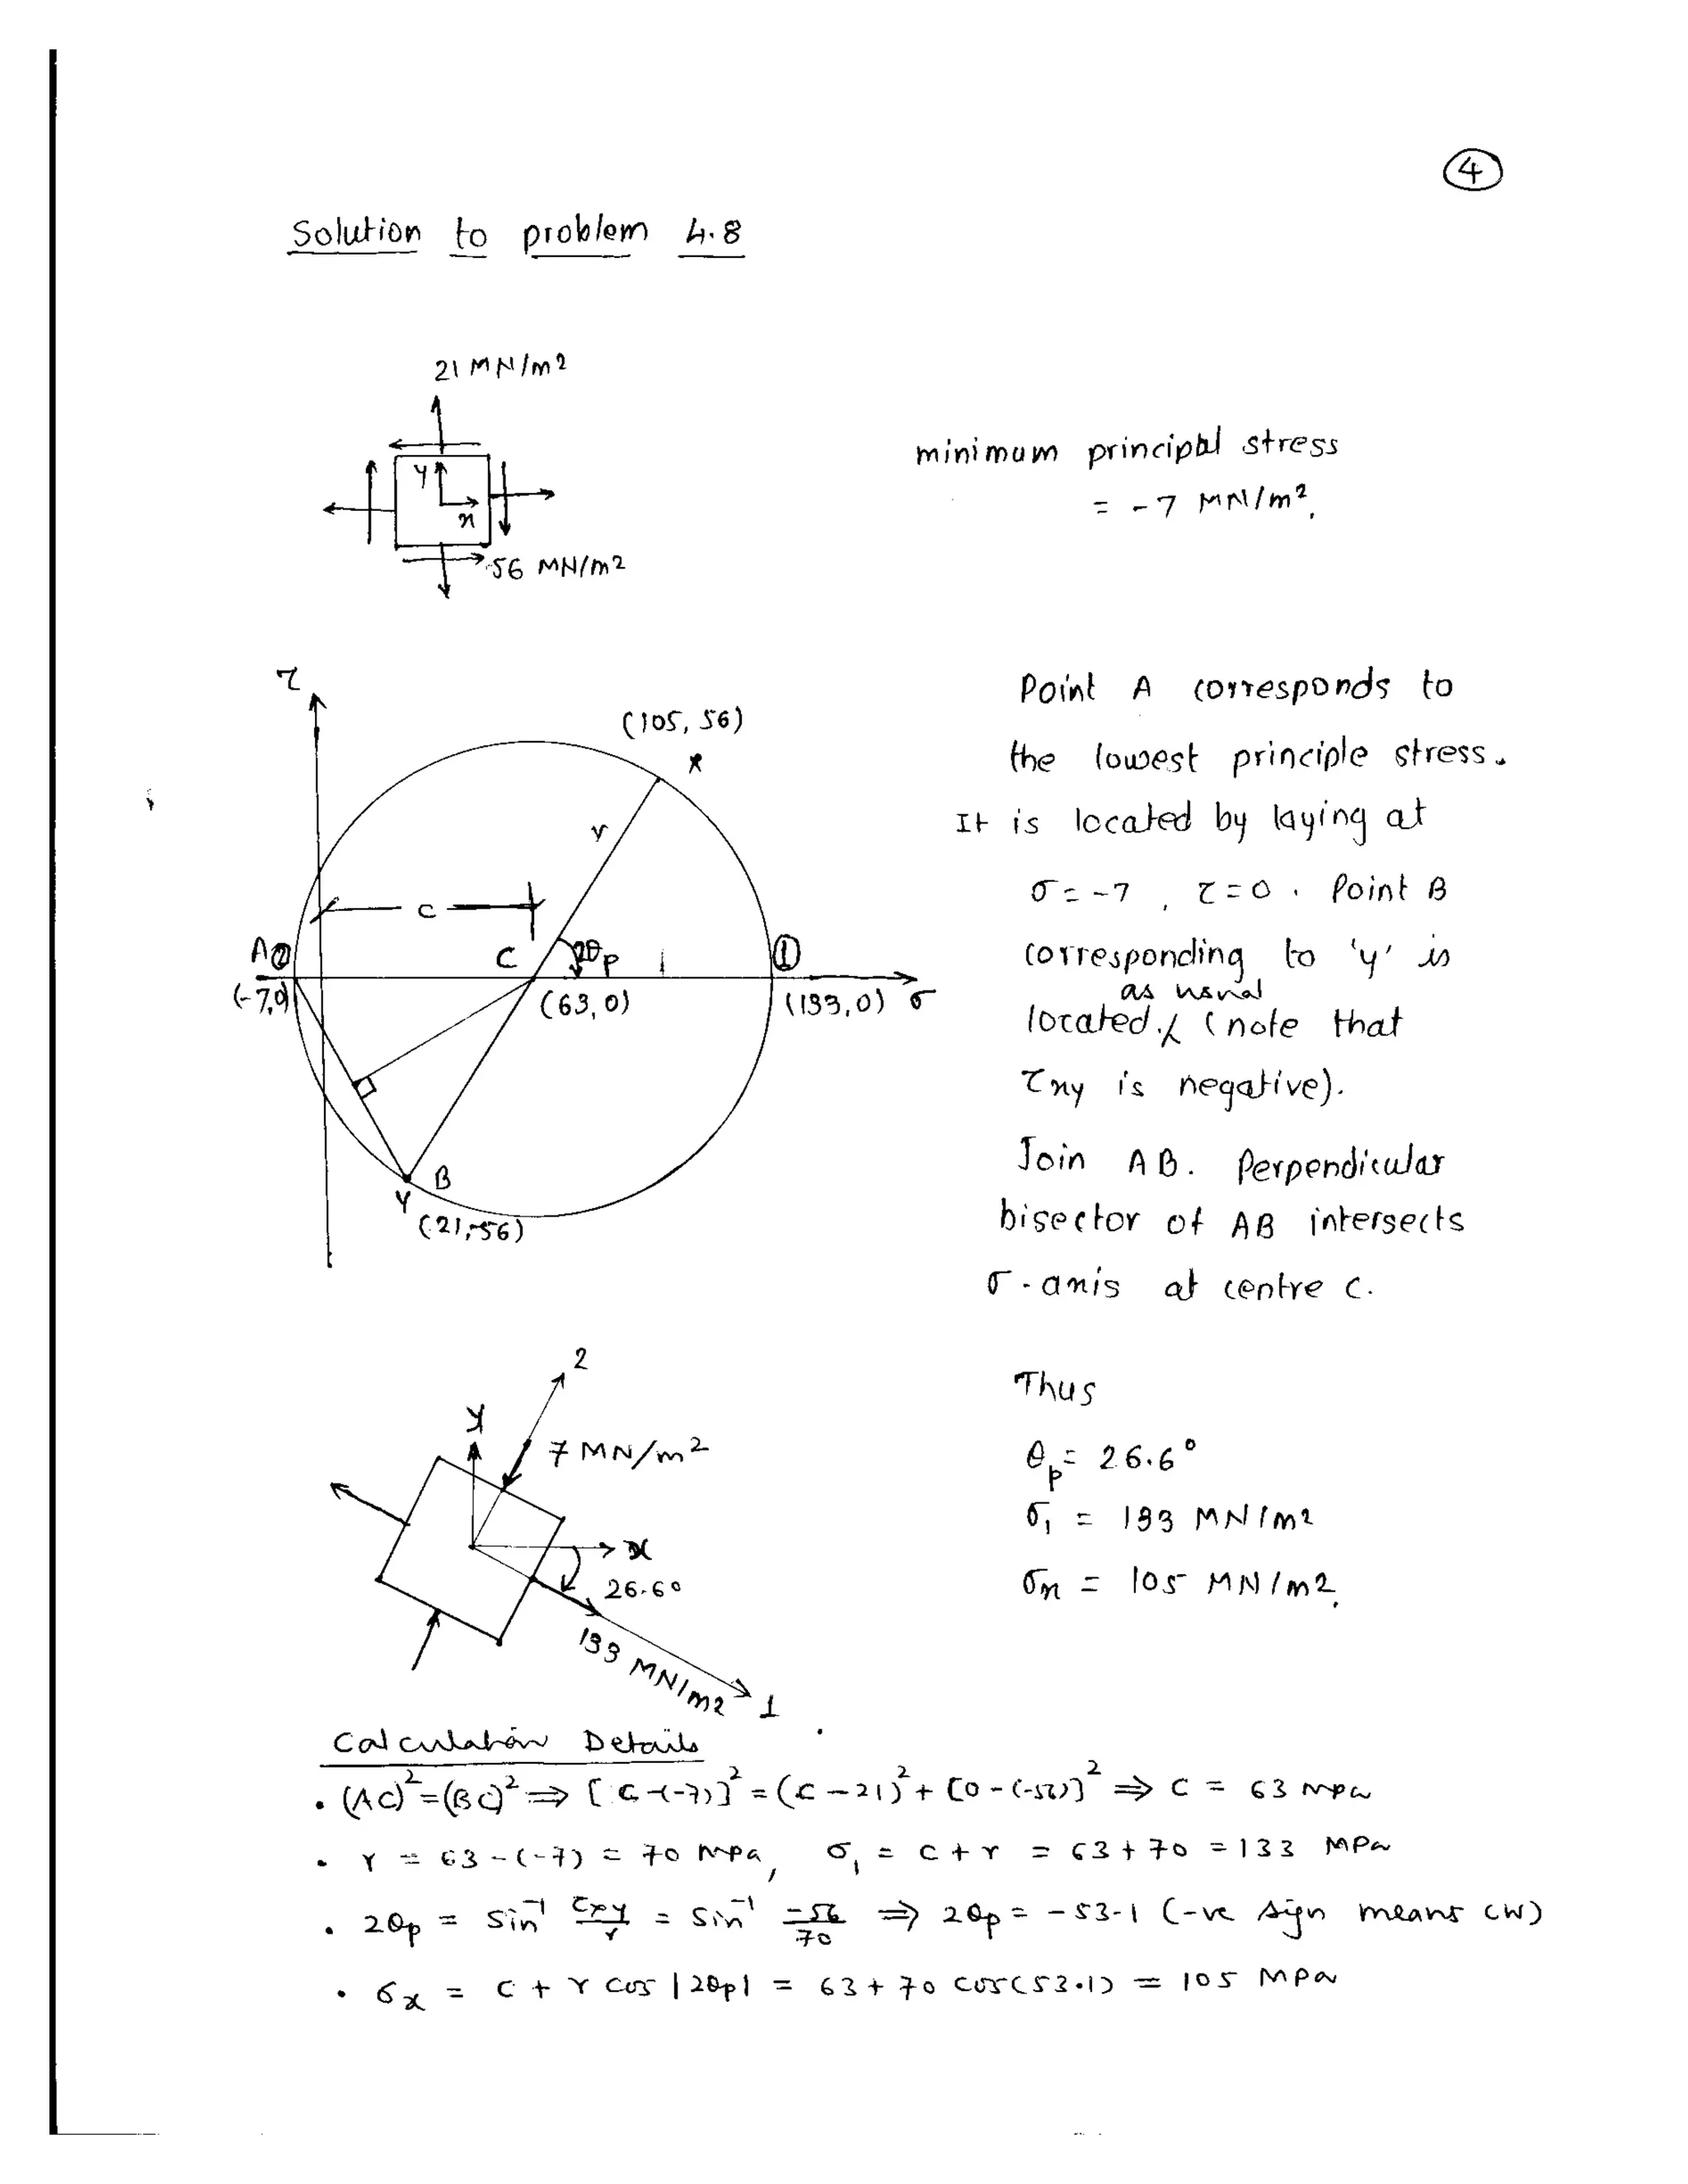 4
Solution to problem 4.8
21 MN/m2
y
x
56 MN/m2
minimum principal stress
= -7 MN/m2.
τ
(105, 56)
x
r
c
A 2
C
2θp
1
(-7,0)
(63,0)
(133,0) σ
B
Y
(21,-56)
Point A corresponds to
the lowest principle stress.
It is located by laying at
σ = -7, τ = 0. Point B
corresponding to 'y' is
as usual
located. (note that
τxy is negative).
Join AB. Perpendicular
bisector of AB intersects
σ-axis at centre C.
2
y
7 MN/m2
x
26.6°
133 MN/m2
1
Thus
θp = 26.6°
σ1 = 133 MN/m2
σx = 105 MN/m2.
Calculation Details
• (AC)² = (BC)² ⇒ [C-(-7)]² = (C-21)² + [0-(-56)]² ⇒ C = 63 MPa
• r = 63-(-7) = 70 MPa, σ1 = C + r = 63+70 = 133 MPa
• 2θp = Sin⁻¹ τxy/r = Sin⁻¹ -56/70 ⇒ 2θp = -53.1 (-ve sign means CW)
• σx = C + r cos |2θp| = 63 + 70 cos(53.1) = 105 MPa